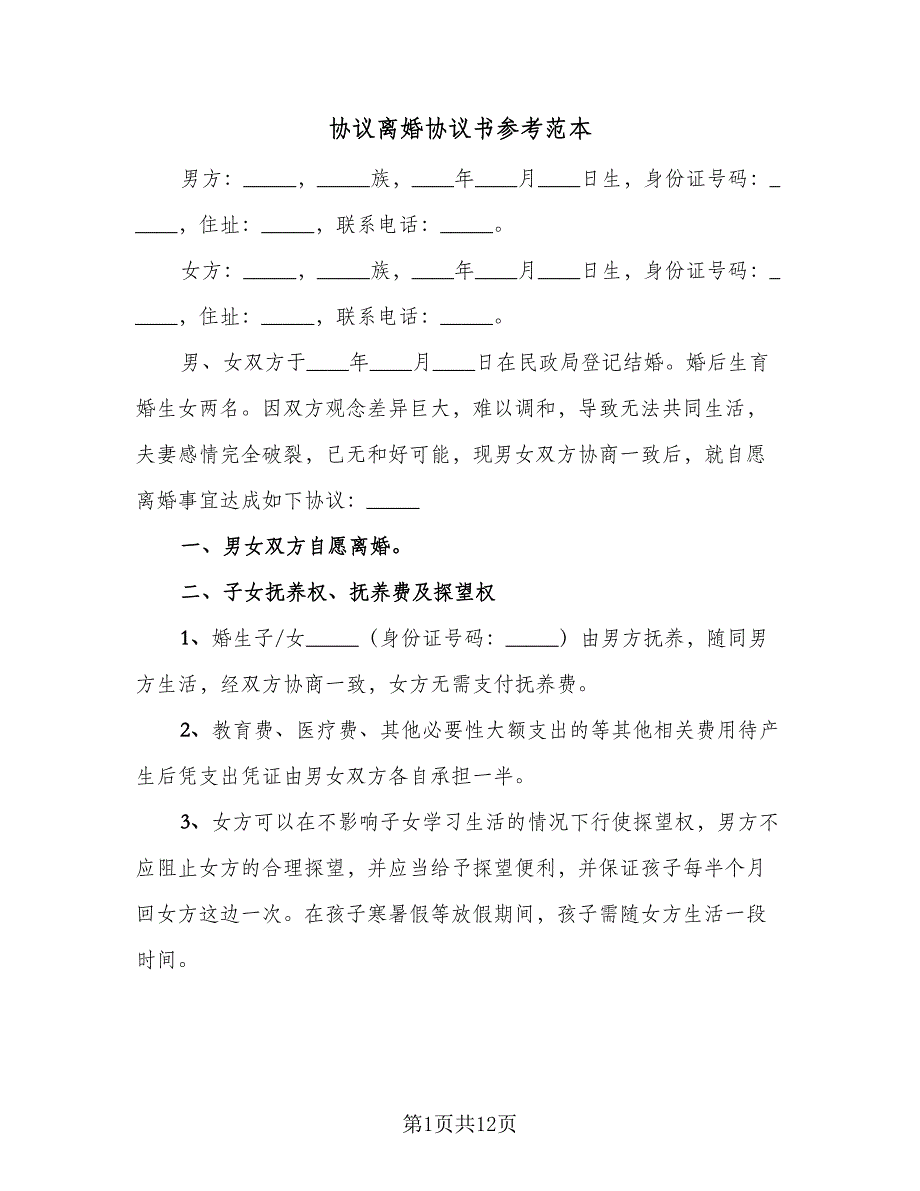 协议离婚协议书参考范本
男方：_____，_____族，____年____月____日生，身份证号码：_
____，住址：_____，联系电话：_____。
女方：_____，_____族，____年____月____日生，身份证号码：_
____，住址：_____，联系电话：_____。
男、女双方于____年____月____日在民政局登记结婚。婚后生育
婚生女两名。因双方观念差异巨大，难以调和，导致无法共同生活，
夫妻感情完全破裂，已无和好可能，现男女双方协商一致后，就自愿
离婚事宜达成如下协议：_____
一、男女双方自愿离婚。
二、子女抚养权、抚养费及探望权
1、婚生子/女_____（身份证号码：_____）由男方抚养，随同男
方生活，经双方协商一致，女方无需支付抚养费。
2、教育费、医疗费、其他必要性大额支出的等其他相关费用待产
生后凭支出凭证由男女双方各自承担一半。
3、女方可以在不影响子女学习生活的情况下行使探望权，男方不
应阻止女方的合理探望，并应当给予探望便利，并保证孩子每半个月
回女方这边一次。在孩子寒暑假等放假期间，孩子需随女方生活一段
时间。
第1页共12页